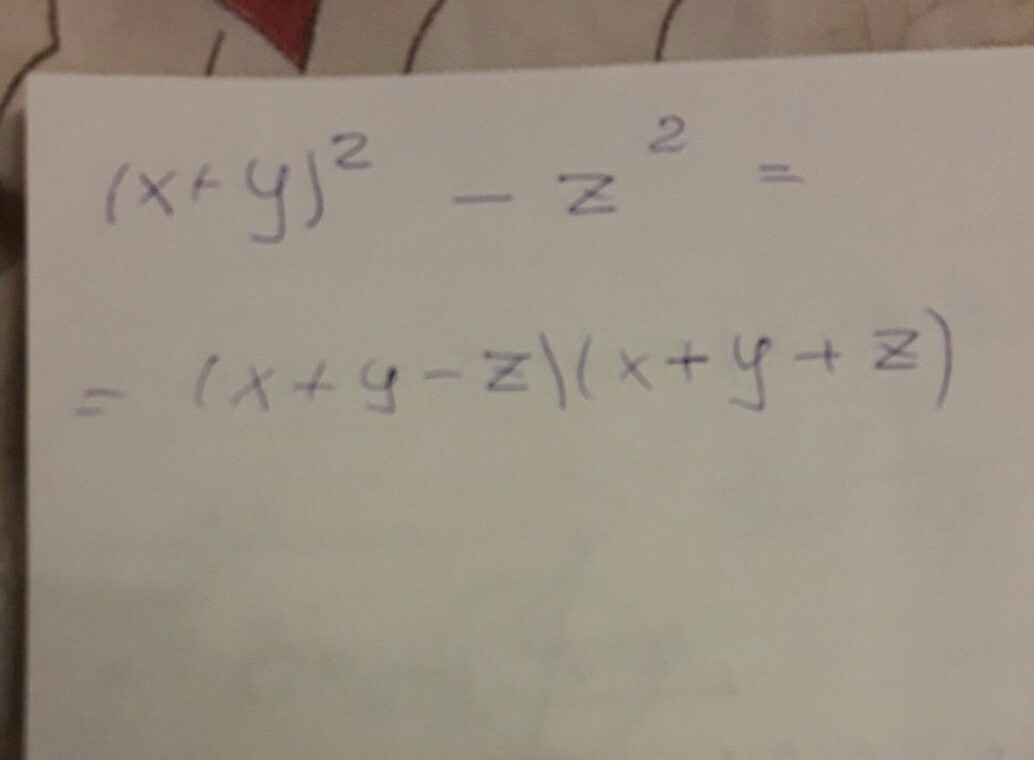 (x+y)² - z² =
= (x+y-z)(x+y+z)